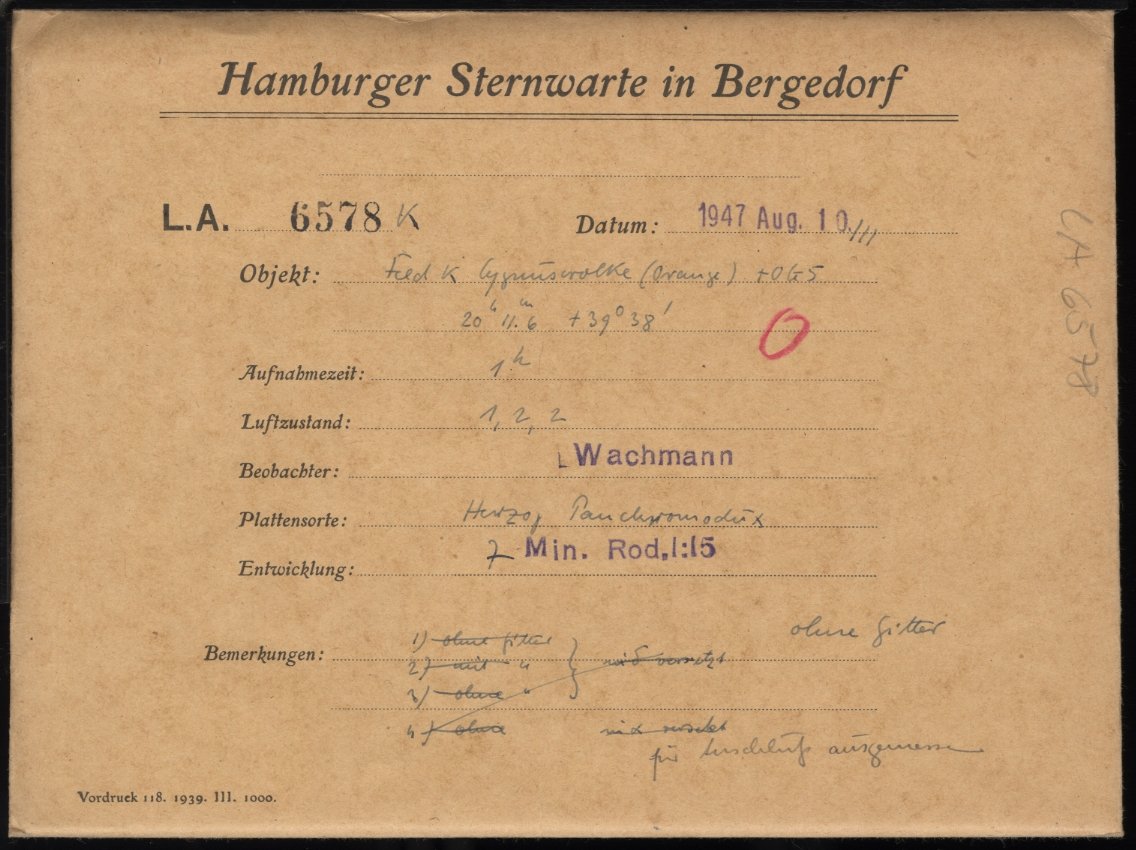 Hamburger Sternwarte in Bergedorf
L.A. 6578 K Datum: 1947 Aug. 10./11
Objekt: Feld K Cygnuswolke (Orange) + OG5
20ʰ 11.ᵐ6 +39⁰38'
Aufnahmezeit: 1ʰ
Luftzustand: 1, 2, 2
Beobachter: Wachmann
Plattensorte: Herzog Panchromodux
Entwicklung: 7 Min. Rod, 1:15
ohne Gitter
Bemerkungen: 1) ohne Gitter
2) mit "
3) ohne "
4) ohne
für Anschluß ausgemessen
Vordruck 118. 1939. III. 1000.
LA 6578